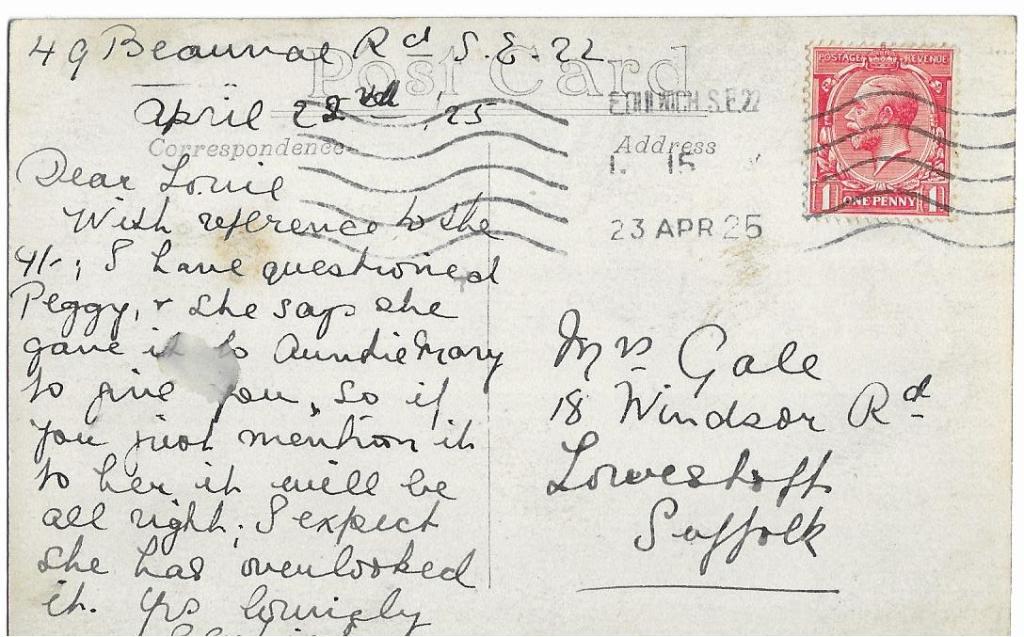 49 Beauval Rd S.E. 22
April 22nd, '25
Post Card
Correspondence
Address
Dear Louie
With reference to the
4/-; I have questioned
Peggy, & she says she
gave it to Auntie Mary
to give you, so if
you just mention it
to her it will be
all right; I expect
she has overlooked
it. Yrs lovingly
POSTAGE REVENUE
1 ONE PENNY 1
E. DULWICH. S.E.22
23 APR 25
Mrs Gale
18 Windsor Rd
Lowestoft
Suffolk